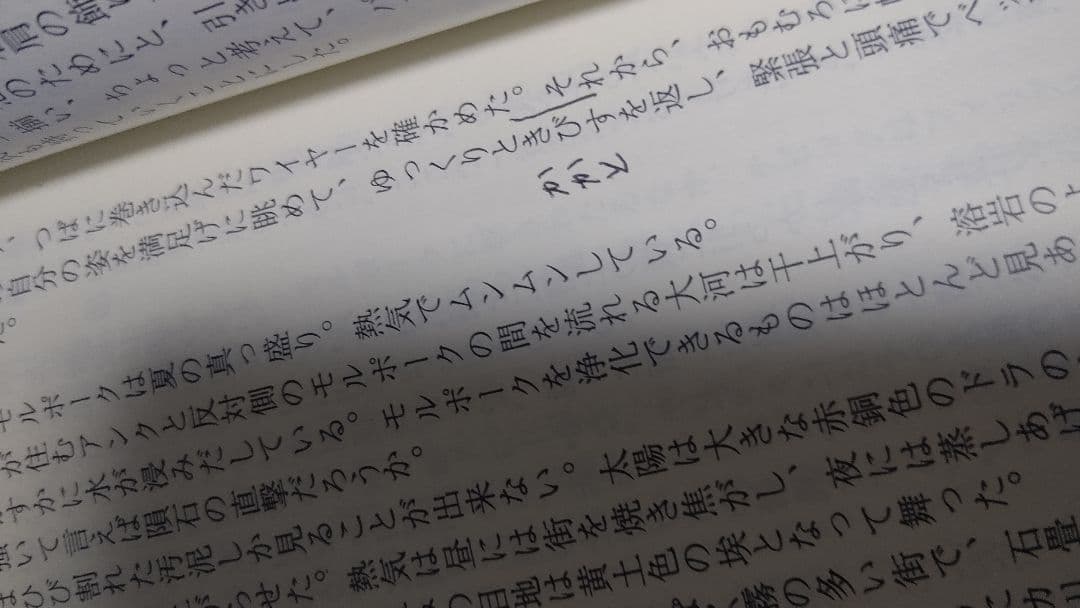 肩の飾
のためにと、引き
い、ちょっと考えて、
ことにした。
、つばに巻き込んだワイヤーを確かめた。それから、おもむろに
自分の姿を満足げに眺めて、ゆっくりときびすを返し、緊張と頭痛でベッ
かかと
た。
モルポークは夏の真っ盛り。熱気でムンムンしている。
が住むアンクと反対側のモルポークの間を流れる大河は干上がり、溶岩の
すかに水が浸みだしている。モルポークを浄化できるものはほとんど見あ
強いて言えば隕石の直撃だろうか。
ひび割れた汚泥しか見ることが出来ない。太陽は大きな赤銅色のドラの
らせた。熱気は昼には街を焼き焦がし、夜には蒸しあげ
目地は黄土色の埃となって舞った。
霧の多い街で、石畳